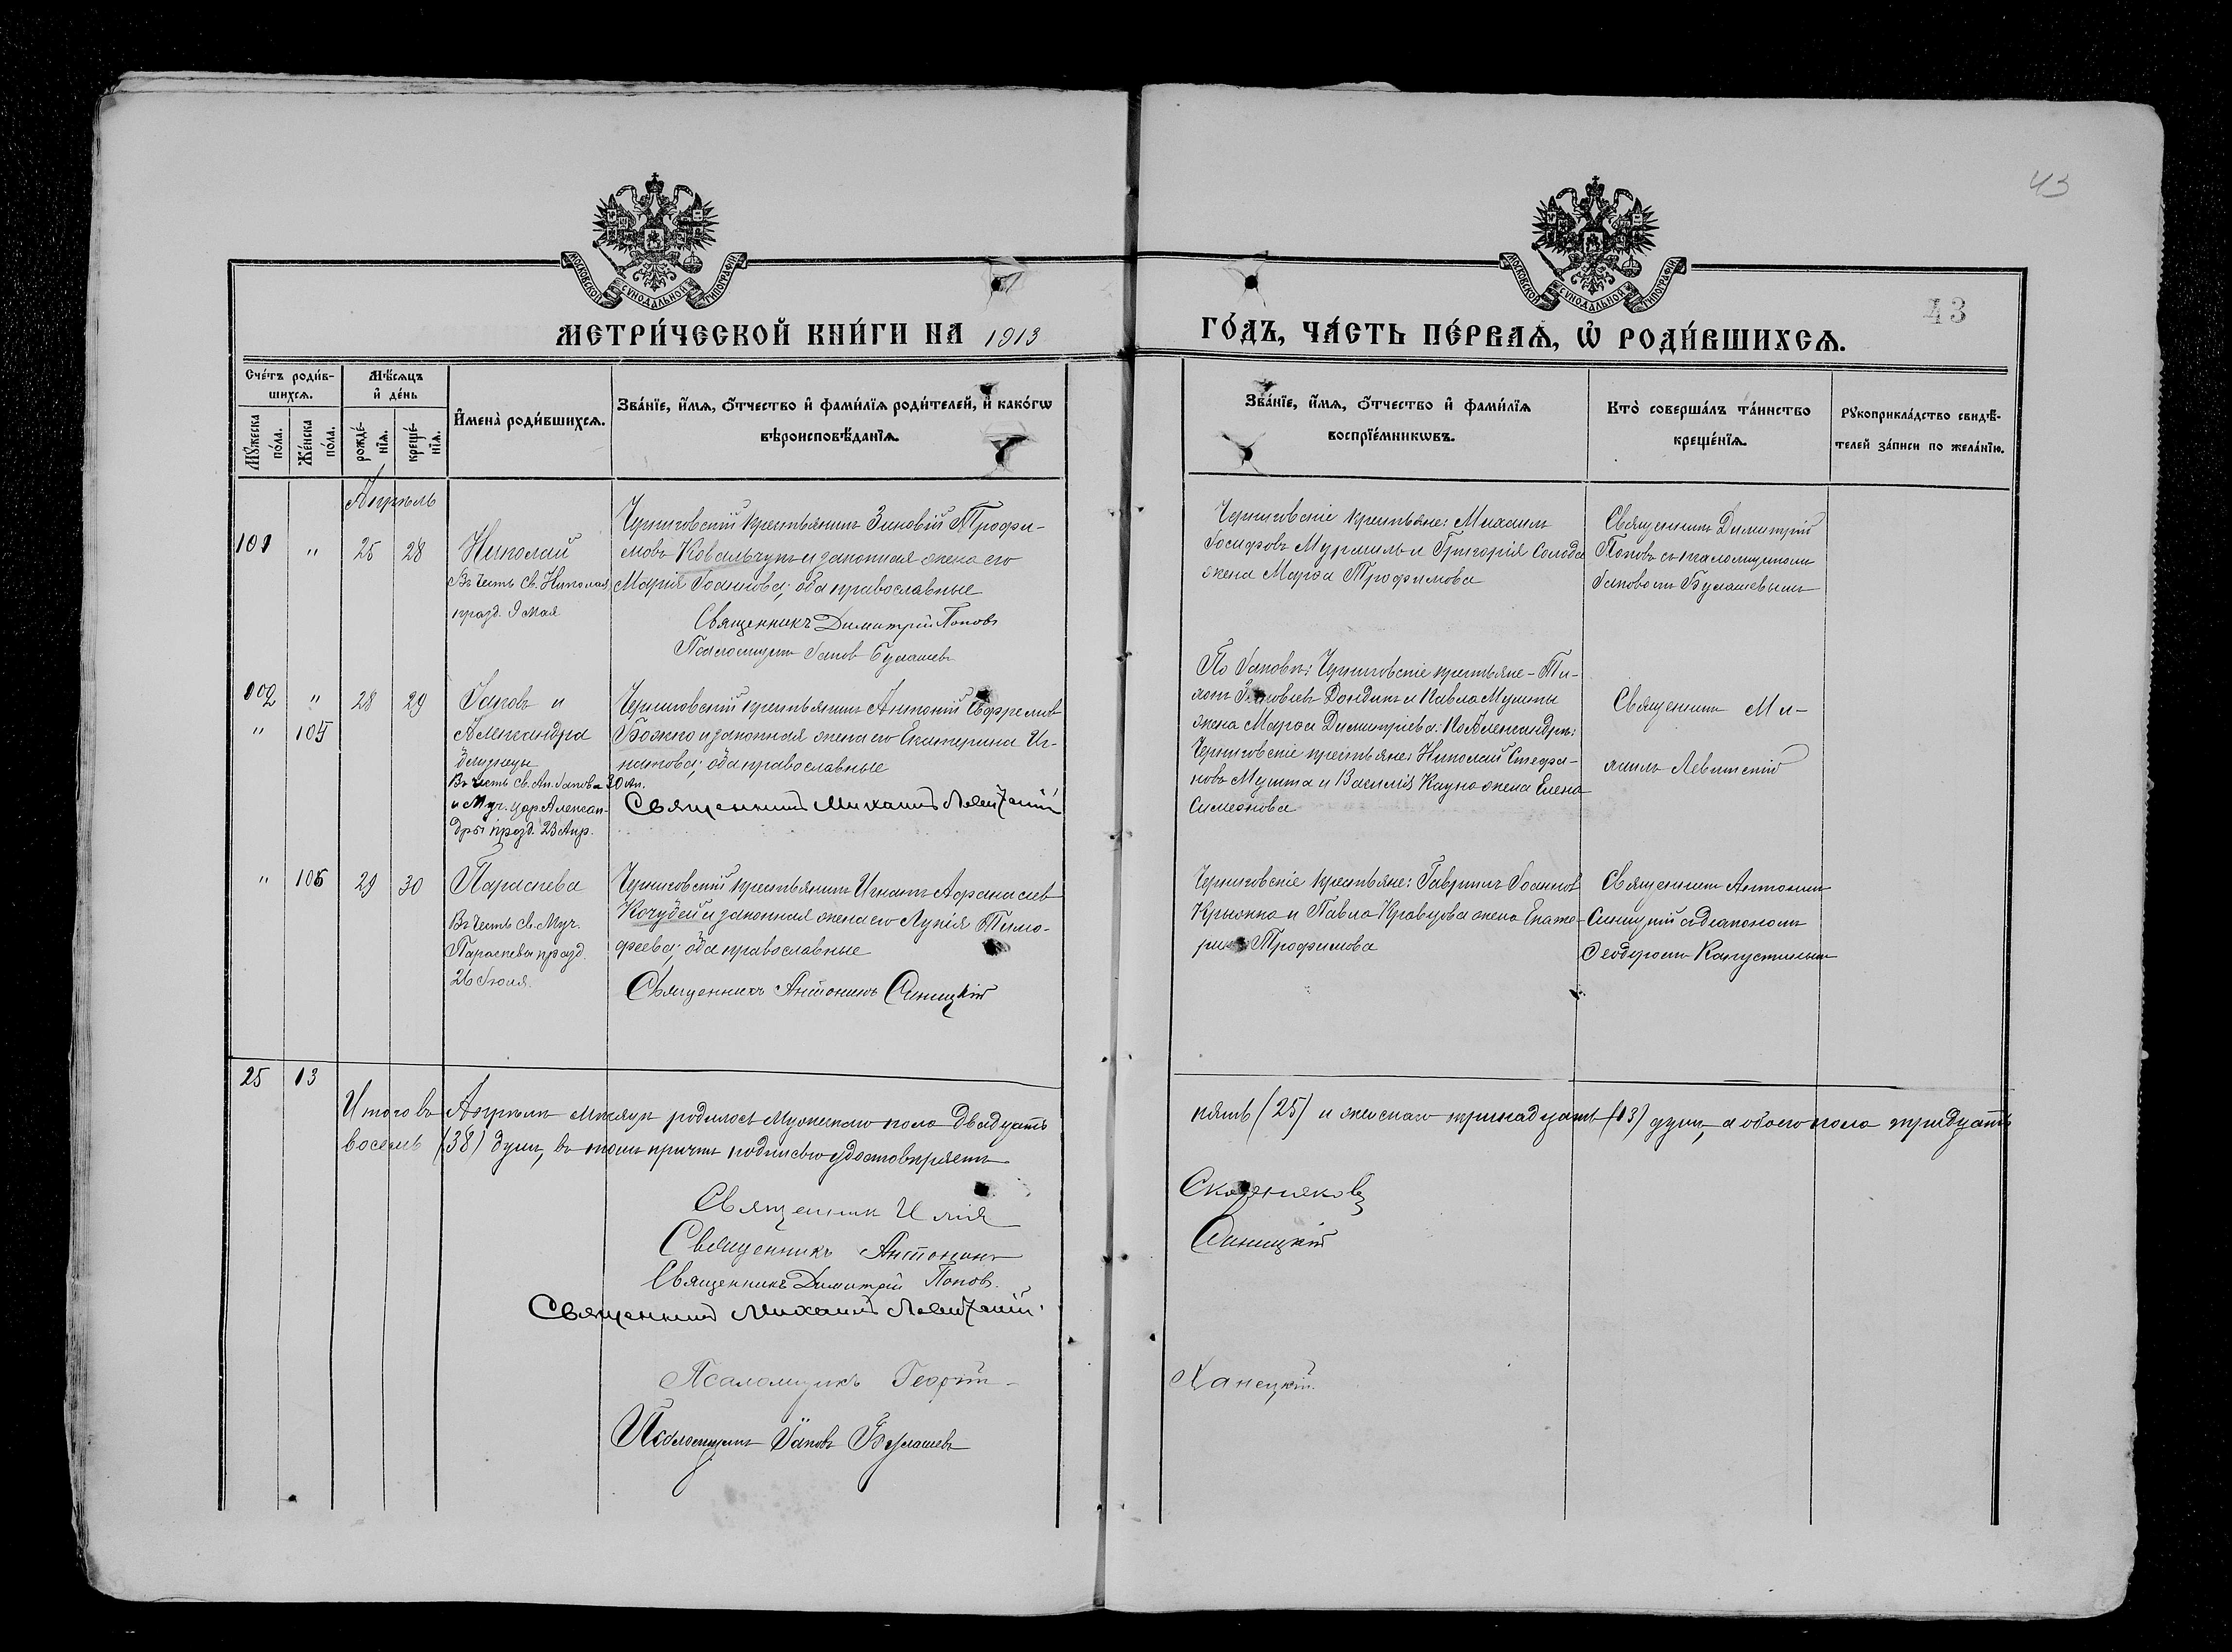 43
МОСКОВСКОЙ СѴНОДАЛЬНОЙ ТИПОГРАФІИ
МОСКОВСКОЙ СѴНОДАЛЬНОЙ ТИПОГРАФІИ
43
МЕТРИ́ЧЕСКОЙ КНИ́ГИ НА 1913
ГО́ДЪ, ЧА́СТЬ ПЕ́РВАѦ, Ѽ РОДИ́ВШИХСѦ.
Сче́тъ роди́в-
шихсѧ.
Мѣ́сѧцъ
и҆ де́нь
Мꙋ́жеска по́ла.
Же́нска по́ла.
рожде́-нїѧ.
креще́-нїѧ.
И҆мена̀ роди́вшихсѧ.
Зва́нїе, и҆́мѧ, ѻ҆́тчество и҆ фами́лїѧ роди́телей, и҆ како́гѡ
вѣроисповѣ́данїѧ.
Зва́нїе, и҆́мѧ, ѻ҆́тчество и҆ фами́лїѧ
воспрїе́мникѡвъ.
Кто̀ соверша́лъ та́инство
креще́нїѧ.
Рꙋкоприкла́дство свидѣ́-
телей за́писи по жела́нїю.
Апрѣль
101 " 25 28
Николай
Въ честь Св. Николая
празд. 9 Мая
Черниговскій крестьянинъ Зиновій Трофи-
мовъ Ковальчукъ и законная жена его
Марія Іоаннова; оба православные
Священникъ Димитрій Поповъ
Псаломщикъ Іаковъ Булашевъ
Черниговскіе крестьяне: Михаилъ
Іосифовъ Мурмилъ и Григорія Солода
жена Марѳа Трофимова
Священникъ Димитрій
Поповъ съ псаломщикомъ
Іаковомъ Булашевымъ
102 " 28 29
" 105
Іаковъ и
Александра
близнецы
Въ честь Св. Ап. Іакова 30 Ап.
и Муч. Цар. Алексан-
дры празд. 23 Апр.
Черниговскій крестьянинъ Антоній Евфремовъ
Божко и законная жена его Екатерина Иг-
натова; оба православные
Священникъ Михаилъ Левитскій
По Іаковѣ: Черниговскіе крестьяне - Ти-
хонъ Яковлевъ Дондикъ и Павла Мушты
жена Марѳа Димитріева: По Александрѣ:
Черниговскіе крестьяне: Николай Стефа-
новъ Мушта и Василія Кауна жена Елена
Симеонова
Священникъ Ми-
хаилъ Левитскій
" 106 29 30
Параскева
Въ честь Св. Муч.
Параскевы празд.
26 Іюля.
Черниговскій крестьянинъ Игнатъ Афанасіевъ
Кочубей и законная жена его Лукія Тимо-
феева; оба православные
Священникъ Антонинъ Синицкій
Черниговскіе крестьяне: Гавріилъ Іоанновъ
Крыжко и Павла Кравцова жена Екате-
рина Трофимова
Священникъ Антонинъ
Синицкій съ діакономъ
Ѳеодоромъ Капустинымъ
25 13
Итого въ Апрѣлѣ мѣсяцѣ родилось Мужескаго пола двадцать
пять (25) и женскаго тринадцать (13) душъ, а обоего пола тридцать
восемь (38) душъ, въ томъ причтъ подписью удостовѣряетъ
Священникъ Илія
Скотняковъ
Священникъ Антонинъ
Синицкій
Священникъ Димитрій Поповъ.
Священникъ Михаилъ Левитскій.
Псаломщикъ Георгій
Ханецкій.
Псаломщикъ Іаковъ Булашевъ